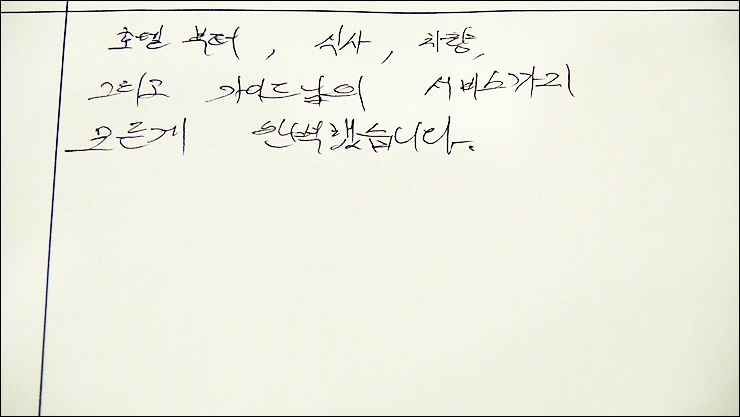 호텔 부터, 식사, 차량,
그리고 가이드님의 서비스까지
모든게 완벽했습니다.